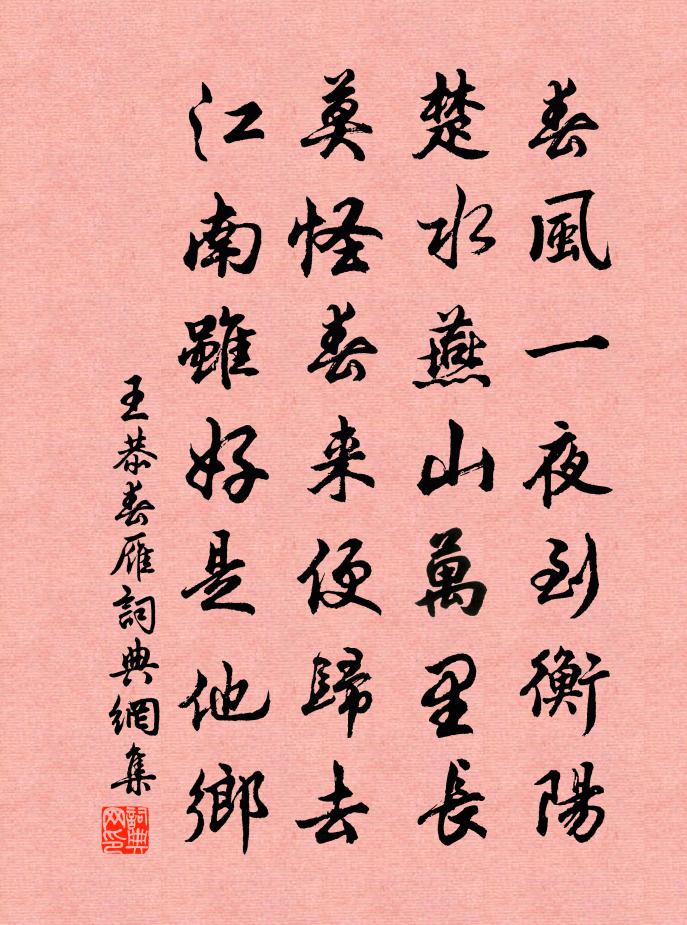 春風一夜到衡陽
楚水燕山萬里長
莫怪春来便歸去
江南雖好是他鄉
王恭春雁詞典網集
詞典网印